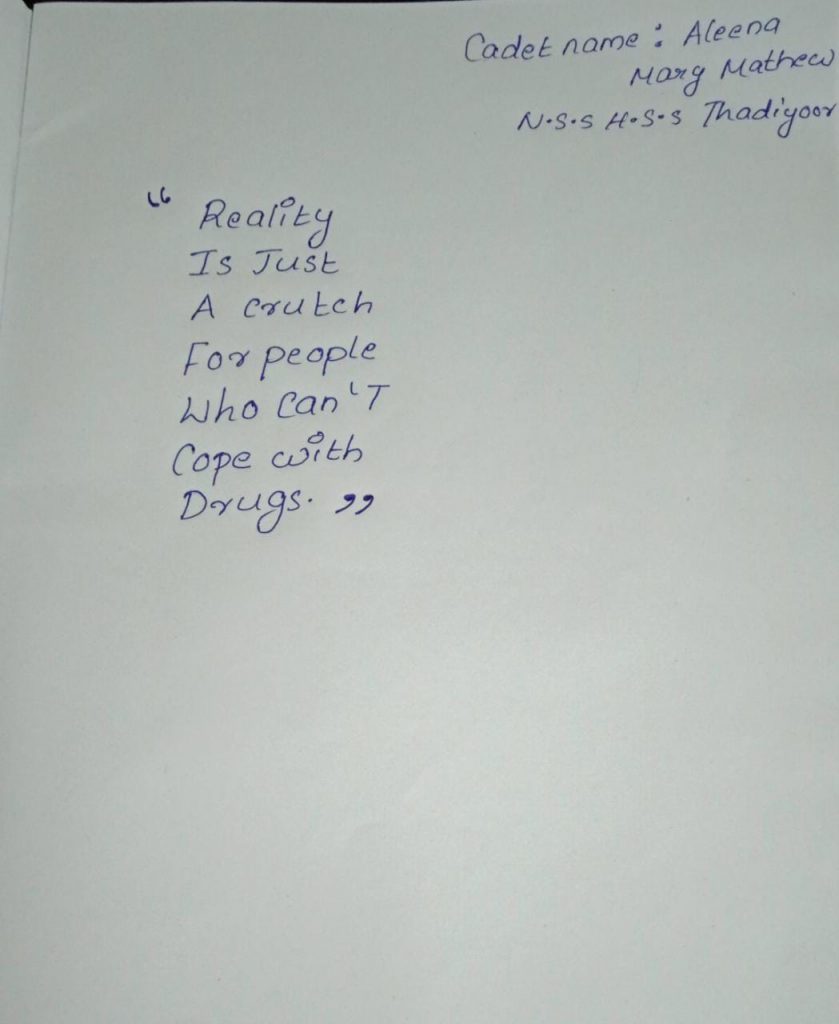 Cadet name : Aleena
Mary Mathew
N.S.S H.S.S Thadiyoor
“ Reality
Is Just
A crutch
For people
Who Can'T
Cope with
Drugs. ”